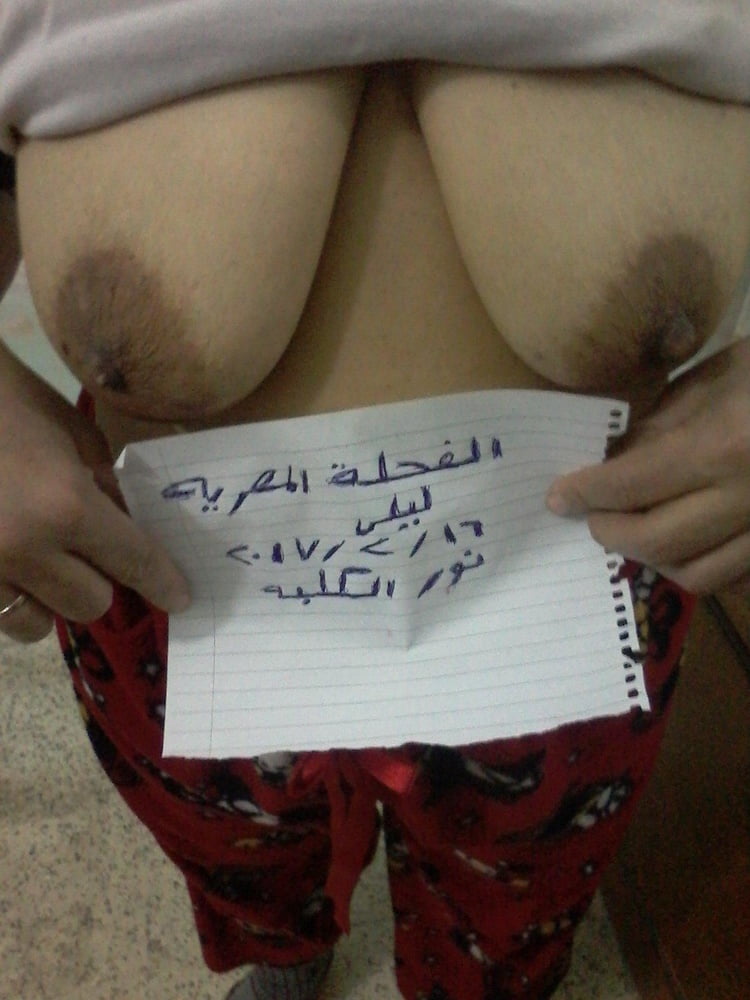 الفحلة المصريه
ليلى
١٦/٢/٢٠١٧
نور الكلبه